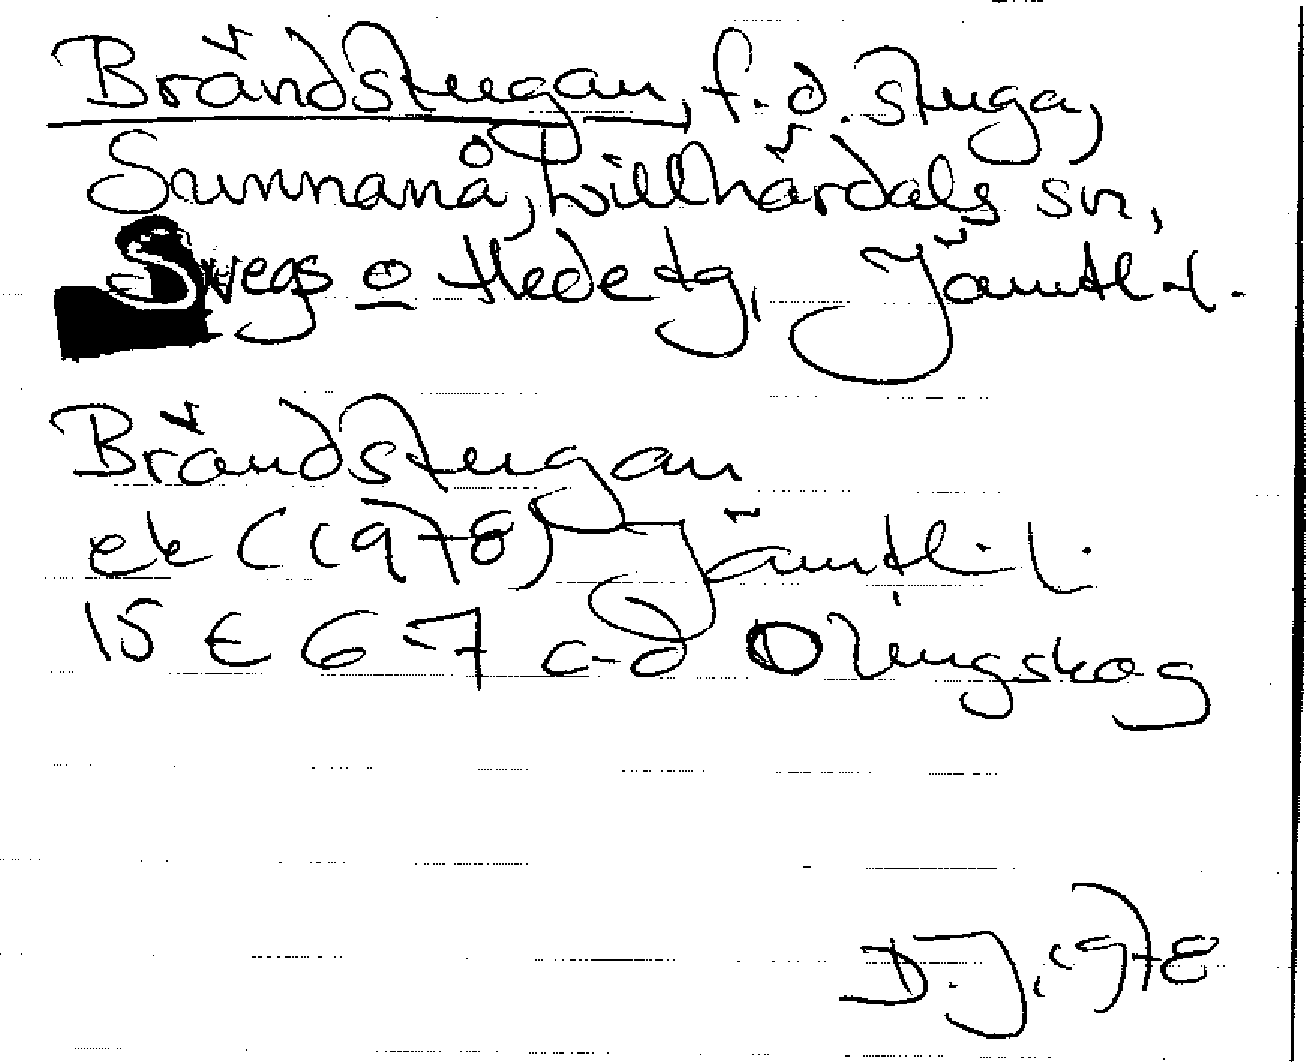 Brändstugan, f.d. stuga,
Sunnanå, Lillhärdals sn,
Svegs o Hede tg, Jämtl. l.
Brändstugan
ek (1978) Jämtl. l.
15 E 6-7 c-d Öringskog
D.J. 1978